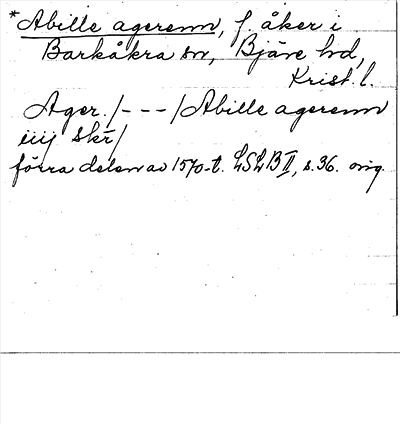 * Abille agerenn, f. åker i
Barkåkra sn, Bjäre hd,
Krist. l.
Ager. /- - -/ Abille agerenn
iiij skr/
förra delen av 1570-t. LSLB II, s. 36. orig.